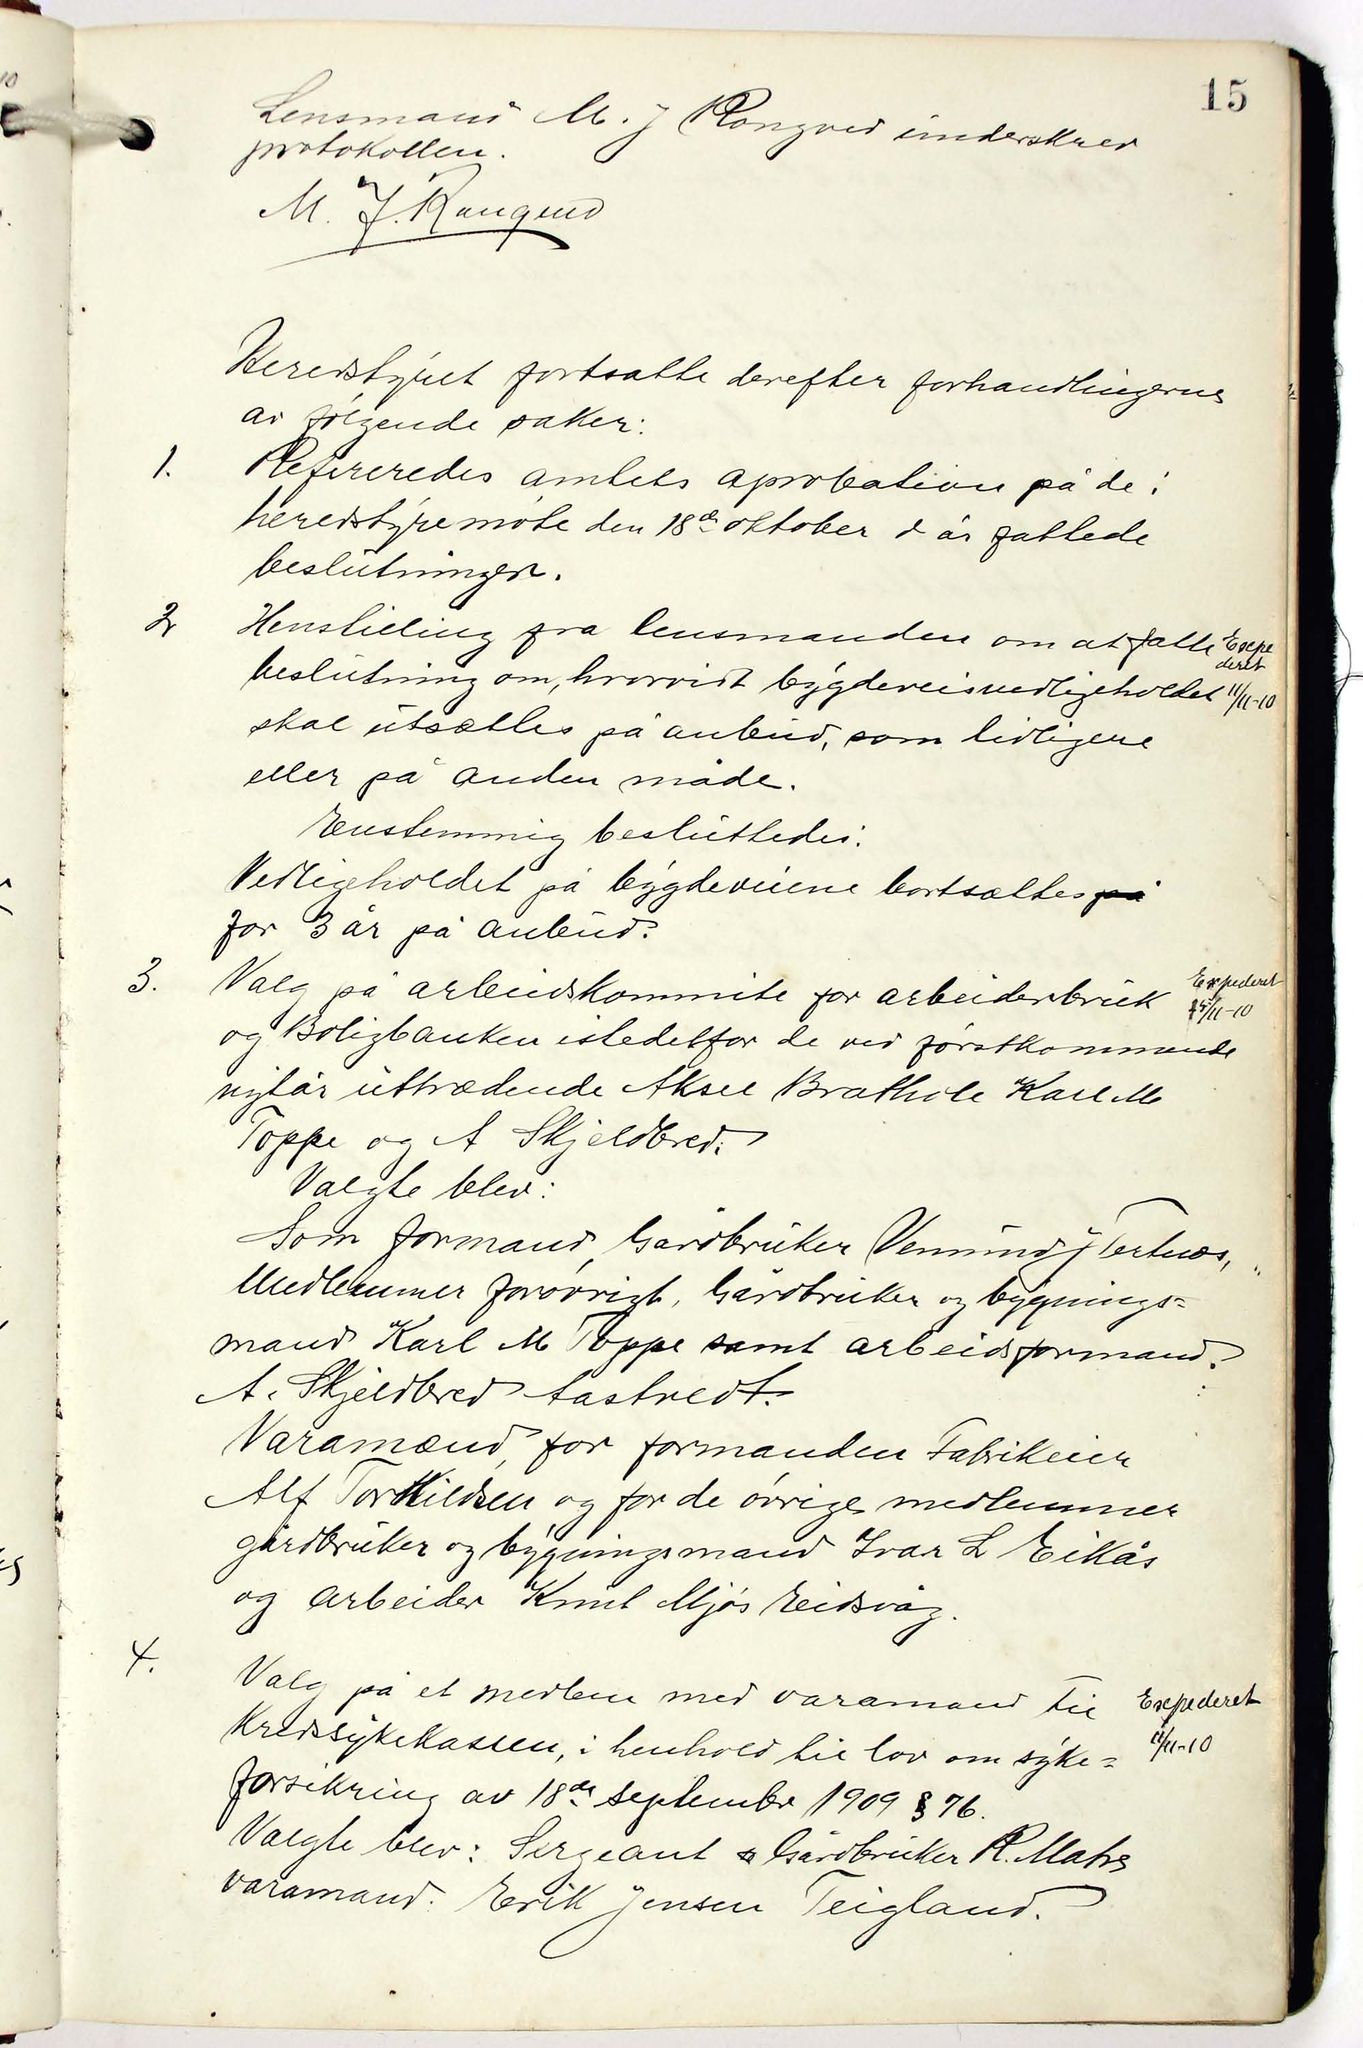 15
Lensmand M. J Rongved underskrev
protokollen.
M. J. Rongved
Heredstyret fortsatte derefter forhandlingerne
av følgende saker:
1. Refereredes amtets aprobation på de i
heredstyremöte den 18de oktober d år fattede
beslutninger.
2 Henstilling fra lensmanden om at fatte Expe
deret
beslutning om, hvorvidt bygdeveisvedligeholdet 11/11-10
skal utsættes på anbud, som tidligere
eller på anden måde.
Enstemmig besluttedes:
Vedligeholdet på bygdeveiene bortsættes på
for 3 år på anbud.
3. Valg på arbeidskommite for arbeiderbruk Expederet
og Boligbanken istedetfor de ved førstkommende 15/11-10
nytår uttrædende Aksel Brathole Karl M
Toppe og A Skjeldbred.
Valgte blev:
Som formand, Gårdbruker Vemund J Tertnæs,
Medlemmer forøvrigt, Gårdbruker og bygnings=
mand Karl M Toppe samt arbeidsformand.
A. Skjeldbred Aastvedt.
Varamænd, for formanden Fabrikeier
Alf Torkildsen og for de øvrige medlemmer
gårdbruker og bygningsmand Ivar L Eikås
og arbeider Knut Mjøs Eidsvåg.
4. Valg på et medlem med varamand til Expederet
Kredssykekassen, i henhold til lov om syke= 11/11-10
forsikring av 18de september 1909 § 76.
Valgte blev: Sergeant & Gårdbruker R. Matre
varamand: Erik Jensen Teigland.